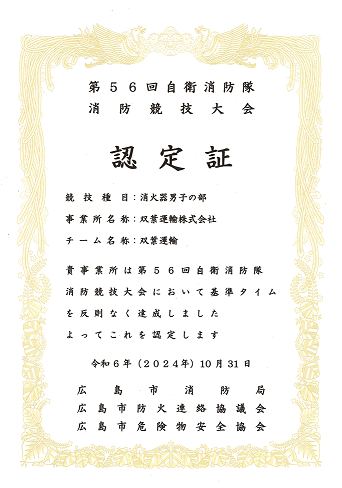 第５６回自衛消防隊
消防競技大会
認定証
競技種目：消火器男子の部
事業所名称：双葉運輸株式会社
チーム名称：双葉運輸
貴事業所は第５６回自衛消防隊
消防競技大会において基準タイム
を反則なく達成しました
よってこれを認定します
令和６年（２０２４年）１０月３１日
広島市消防局
広島市防火連絡協議会
広島市危険物安全協会